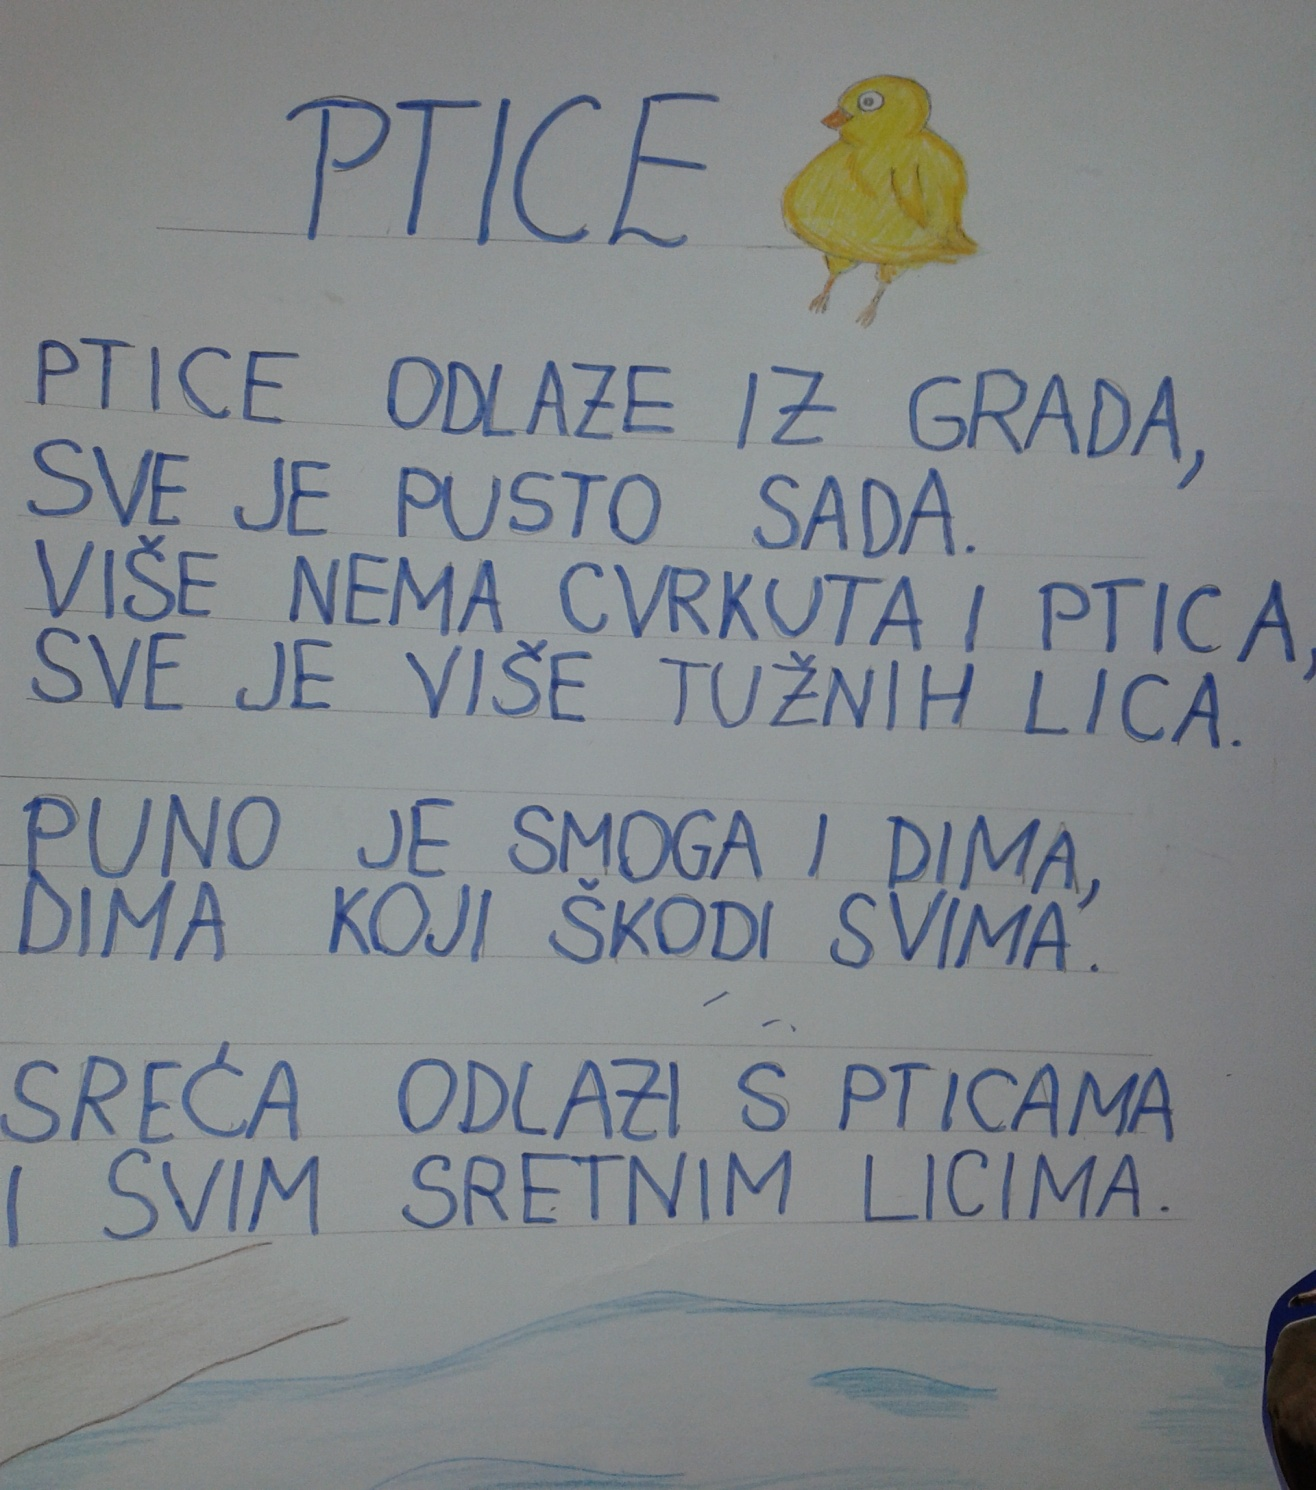 PTICE
PTICE ODLAZE IZ GRADA,
SVE JE PUSTO SADA.
VIŠE NEMA CVRKUTA I PTICA,
SVE JE VIŠE TUŽNIH LICA.
PUNO JE SMOGA I DIMA,
DIMA KOJI ŠKODI SVIMA.
SREĆA ODLAZI S PTICAMA
I SVIM SRETNIM LICIMA.